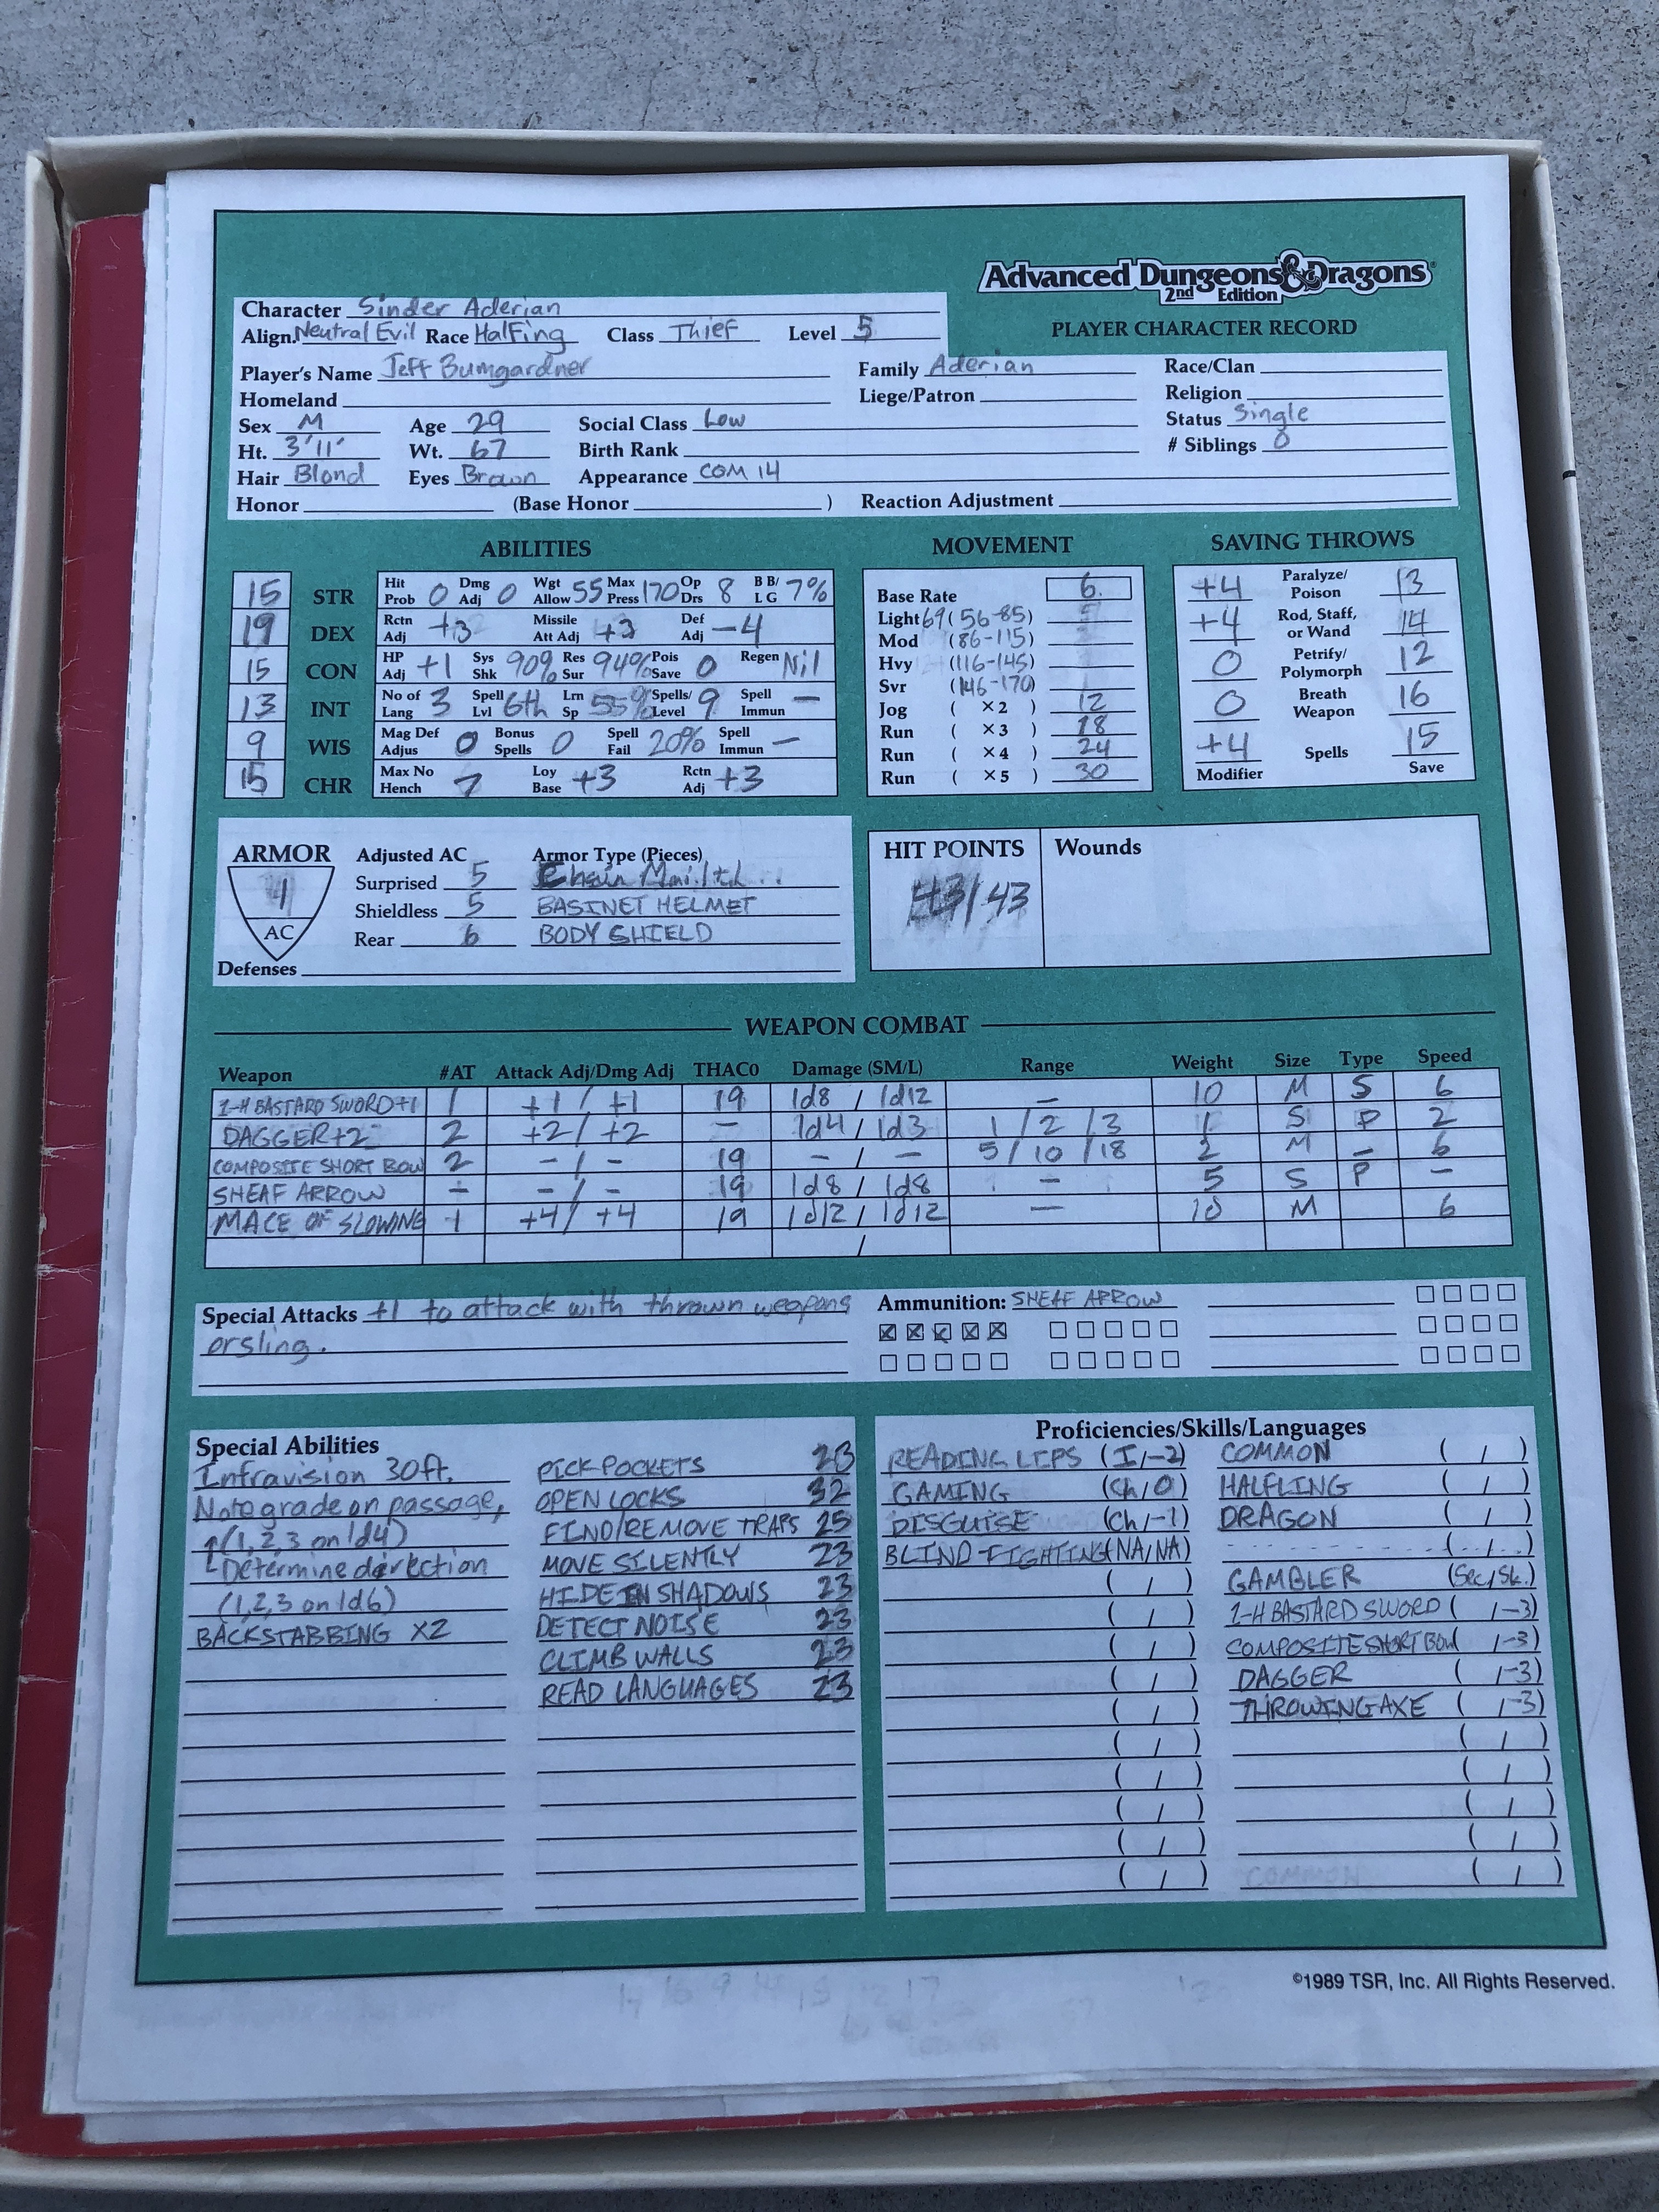 Advanced Dungeons & Dragons®
2nd Edition
PLAYER CHARACTER RECORD
Character Sinder Aderian
Align. Neutral Evil Race Halfing Class Thief Level 5
Player's Name Jeff Bumgardner Family Aderian Race/Clan
Homeland Liege/Patron Religion
Sex M Age 29 Social Class Low Status Single
Ht. 3'11' Wt. 67 Birth Rank # Siblings 0
Hair Blond Eyes Brown Appearance COM 14
Honor (Base Honor ) Reaction Adjustment
ABILITIES
15 STR Hit Prob 0 Dmg Adj 0 Wgt Allow 55 Max Press 170 Op Drs 8 B B/ L G 7%
19 DEX Rctn Adj +3 Missile Att Adj +3 Def Adj -4
15 CON HP Adj +1 Sys Shk 90% Res Sur 94% Pois Save 0 Regen Nil
13 INT No of Lang 3 Spell Lvl 6th Lrn Sp 55% Spells/ Level 9 Spell Immun —
9 WIS Mag Def Adjus 0 Bonus Spells 0 Spell Fail 20% Spell Immun —
15 CHR Max No Hench 7 Loy Base +3 Rctn Adj +3
MOVEMENT
Base Rate 6
Light 69 (56-85)
Mod (86-115)
Hvy (116-145)
Svr (146-170)
Jog ( ×2 ) 12
Run ( ×3 ) 18
Run ( ×4 ) 24
Run ( ×5 ) 30
SAVING THROWS
+4 Paralyze/ Poison 13
+4 Rod, Staff, or Wand 14
0 Petrify/ Polymorph 12
0 Breath Weapon 16
+4 Spells 15
Modifier Save
ARMOR Adjusted AC Armor Type (Pieces)
4 Surprised 5 Chain Mail
Shieldless 5 BASINET HELMET
AC Rear 6 BODY SHIELD
Defenses
HIT POINTS Wounds
43/43
WEAPON COMBAT
Weapon #AT Attack Adj/Dmg Adj THAC0 Damage (SM/L) Range Weight Size Type Speed
1-H BASTARD SWORD+1 1 +1 / +1 19 1d8 / 1d12 — 10 M S 6
DAGGER+2 2 +2 / +2 — 1d4 / 1d3 1 / 2 / 3 1 S P 2
COMPOSITE SHORT BOW 2 - / - 19 - / - 5 / 10 / 18 2 M — 6
SHEAF ARROW - - / - 19 1d8 / 1d8 — 5 S P —
MACE OF SLOWING 1 +4 / +4 19 1d12 / 1d12 — 10 M 6
/
Special Attacks +1 to attack with thrown weapons
or sling.
Ammunition: SHEAF ARROW
Special Abilities
Infravision 30ft.
Note grade on passage,
(1,2,3 on 1d4)
Determine direction
(1,2,3 on 1d6)
BACKSTABBING X2
PICK POCKETS 23
OPEN LOCKS 32
FIND/REMOVE TRAPS 25
MOVE SILENTLY 23
HIDE IN SHADOWS 23
DETECT NOISE 23
CLIMB WALLS 23
READ LANGUAGES 23
Proficiencies/Skills/Languages
READING LIPS (I/-2) COMMON ( / )
GAMING (Ch/0) HALFLING ( / )
DISGUISE (Ch/-1) DRAGON ( / )
BLIND FIGHTING (NA/NA) ( / )
( / ) GAMBLER (Sec/Sk.)
( / ) 1-H BASTARD SWORD ( /-3)
( / ) COMPOSITE SHORT BOW ( /-3)
( / ) DAGGER ( /-3)
( / ) THROWING AXE ( /-3)
( / ) ( / )
( / ) ( / )
( / ) ( / )
( / ) ( / )
( / ) COMMON ( / )
©1989 TSR, Inc. All Rights Reserved.